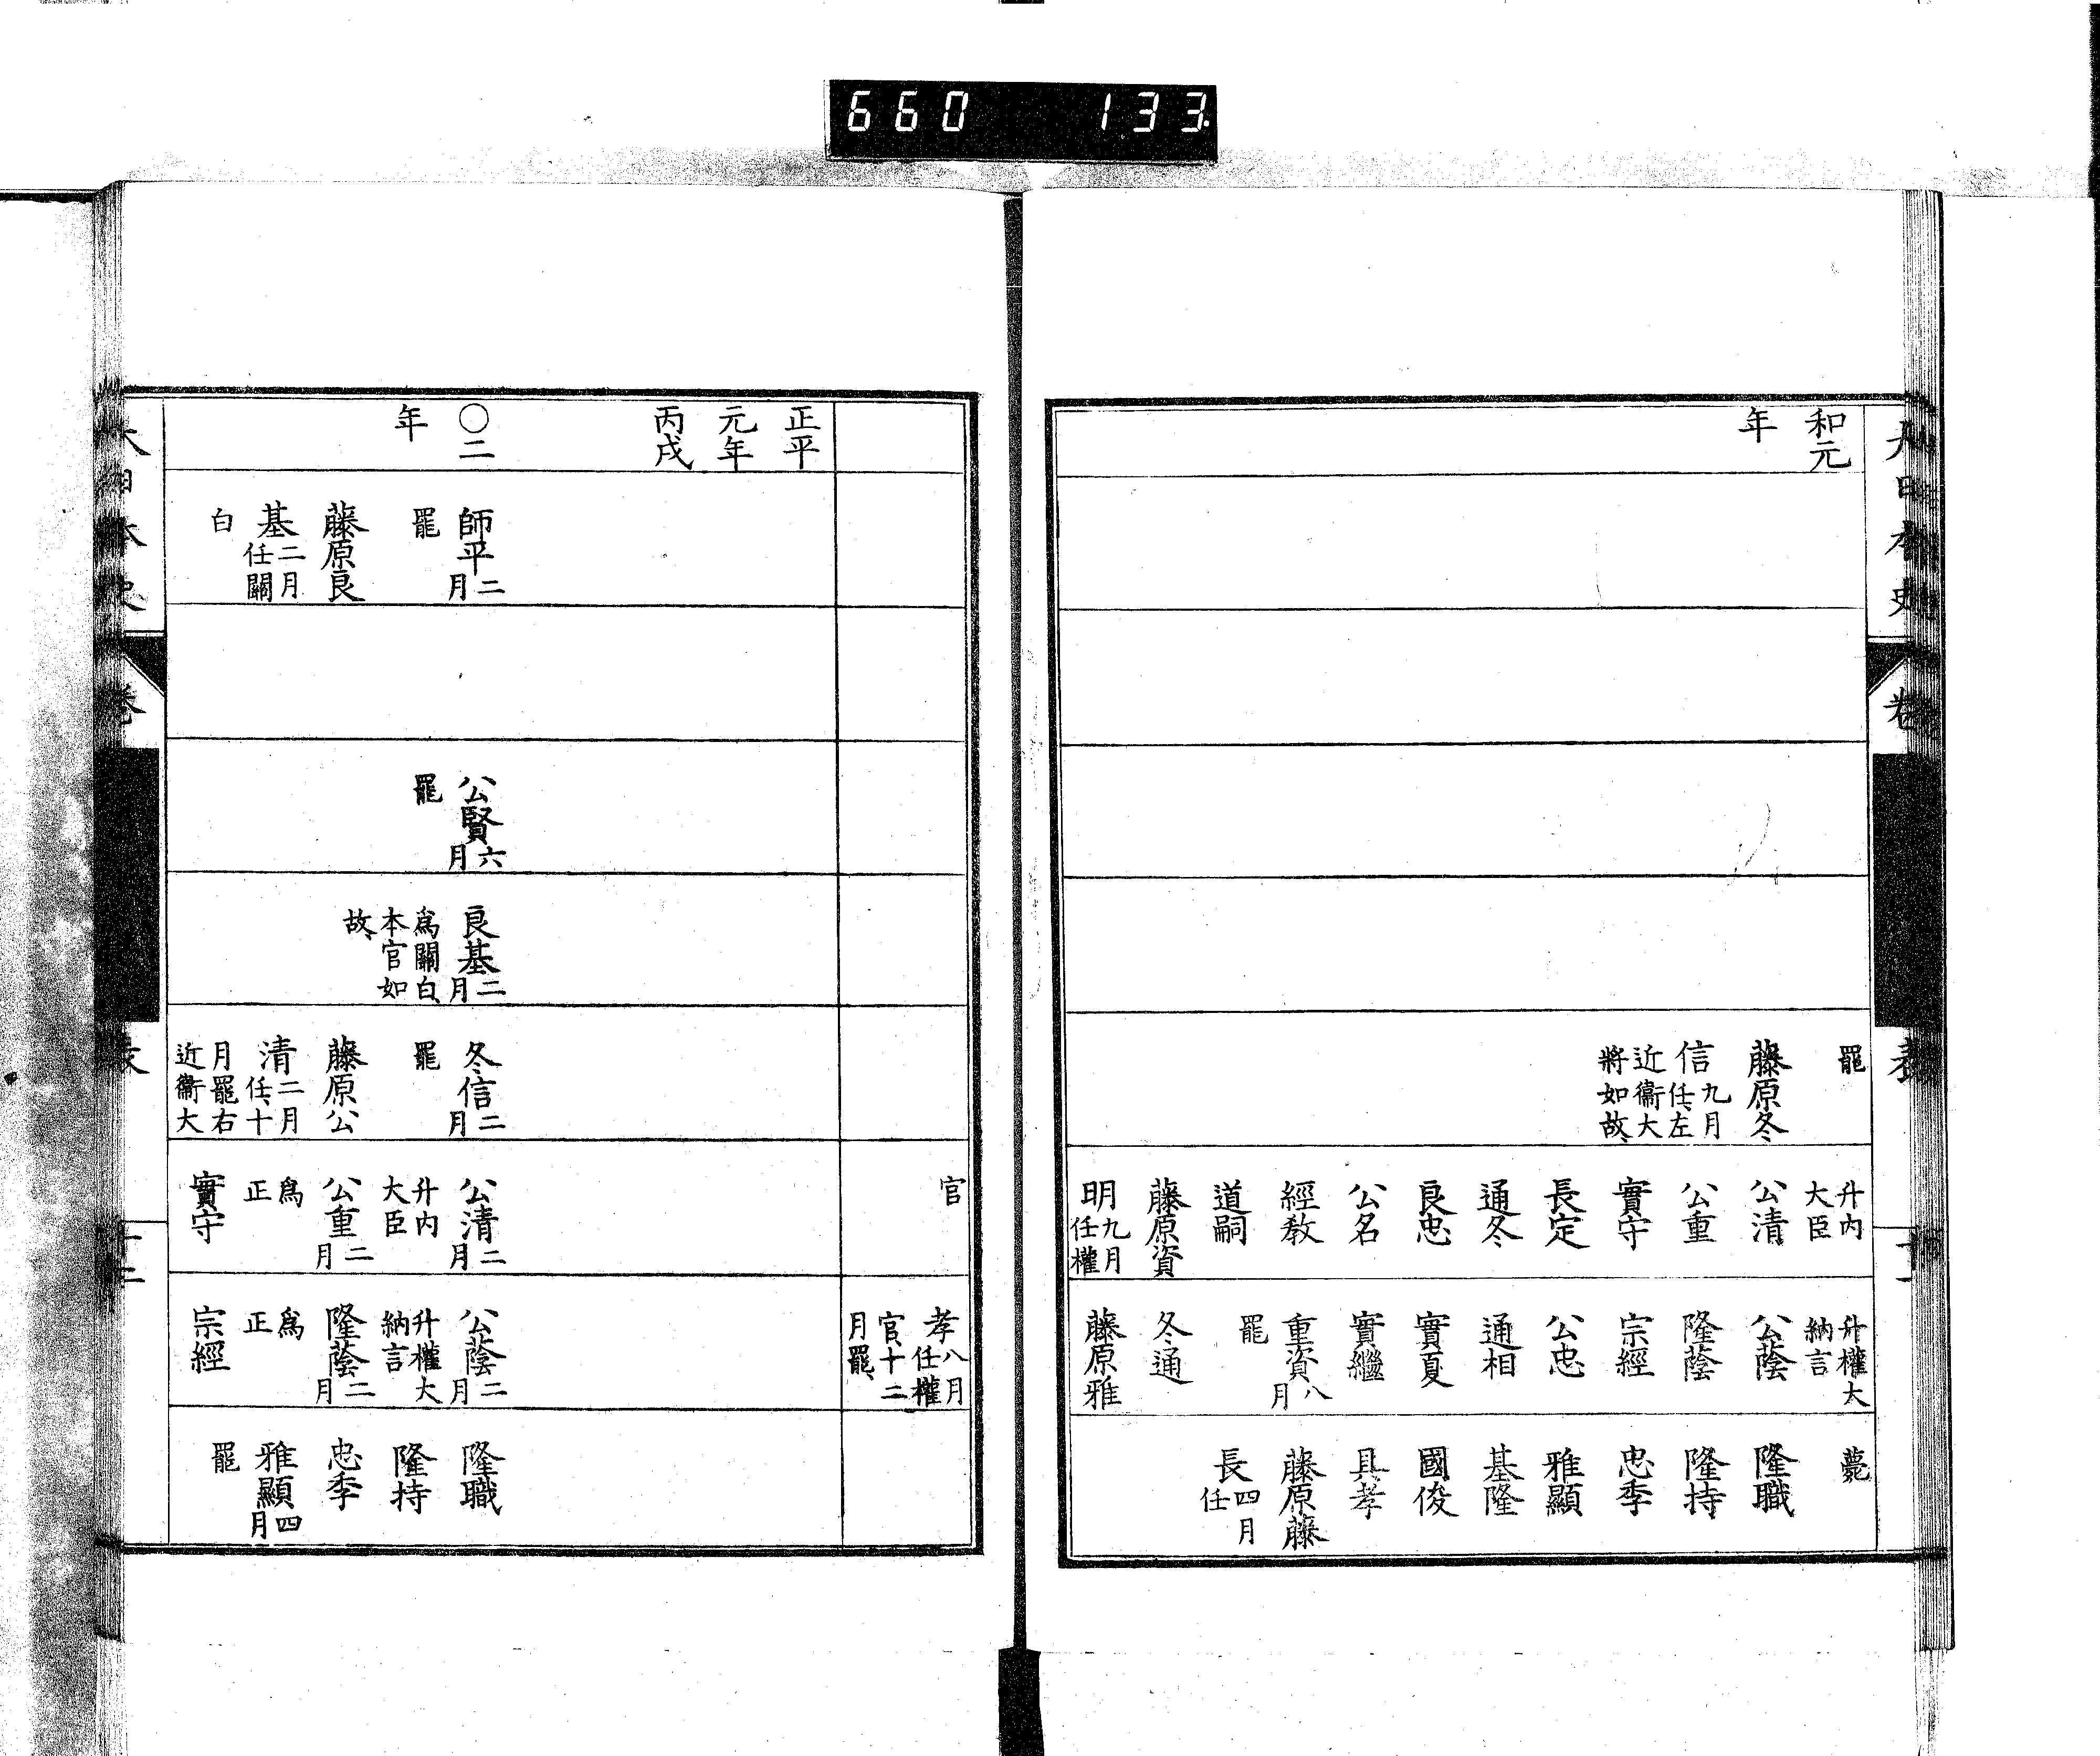 660 133.
大日本史
卷
表
和元
年
罷
藤原冬
信九月任左
近衞大
將如故
升内
大臣
公清
公重
實守
長定
通冬
良忠
公名
經教
道嗣
藤原資
明九月任權
升權大
納言
公蔭
隆蔭
宗經
公忠
通相
實夏
實繼
重資八月
罷
冬通
藤原雅
薨
隆職
隆持
忠季
雅顯
基隆
國俊
具孝
藤原藤
長四月任
官
孝八月任權
官十二
月罷
正平
元年
丙戌
〇二
年
師平二月
罷
藤原良
基二月任關
白
公賢六月
罷
良基二月
爲關白
本官如
故
冬信二月
罷
藤原公
清二月任十
月罷右
近衞大
公清二月
升内
大臣
公重二月
爲
正
實守
公蔭二月
升權大
納言
隆蔭二月
爲
正
宗經
隆職
隆持
忠季
雅顯四月
罷
大日本史
卷
表